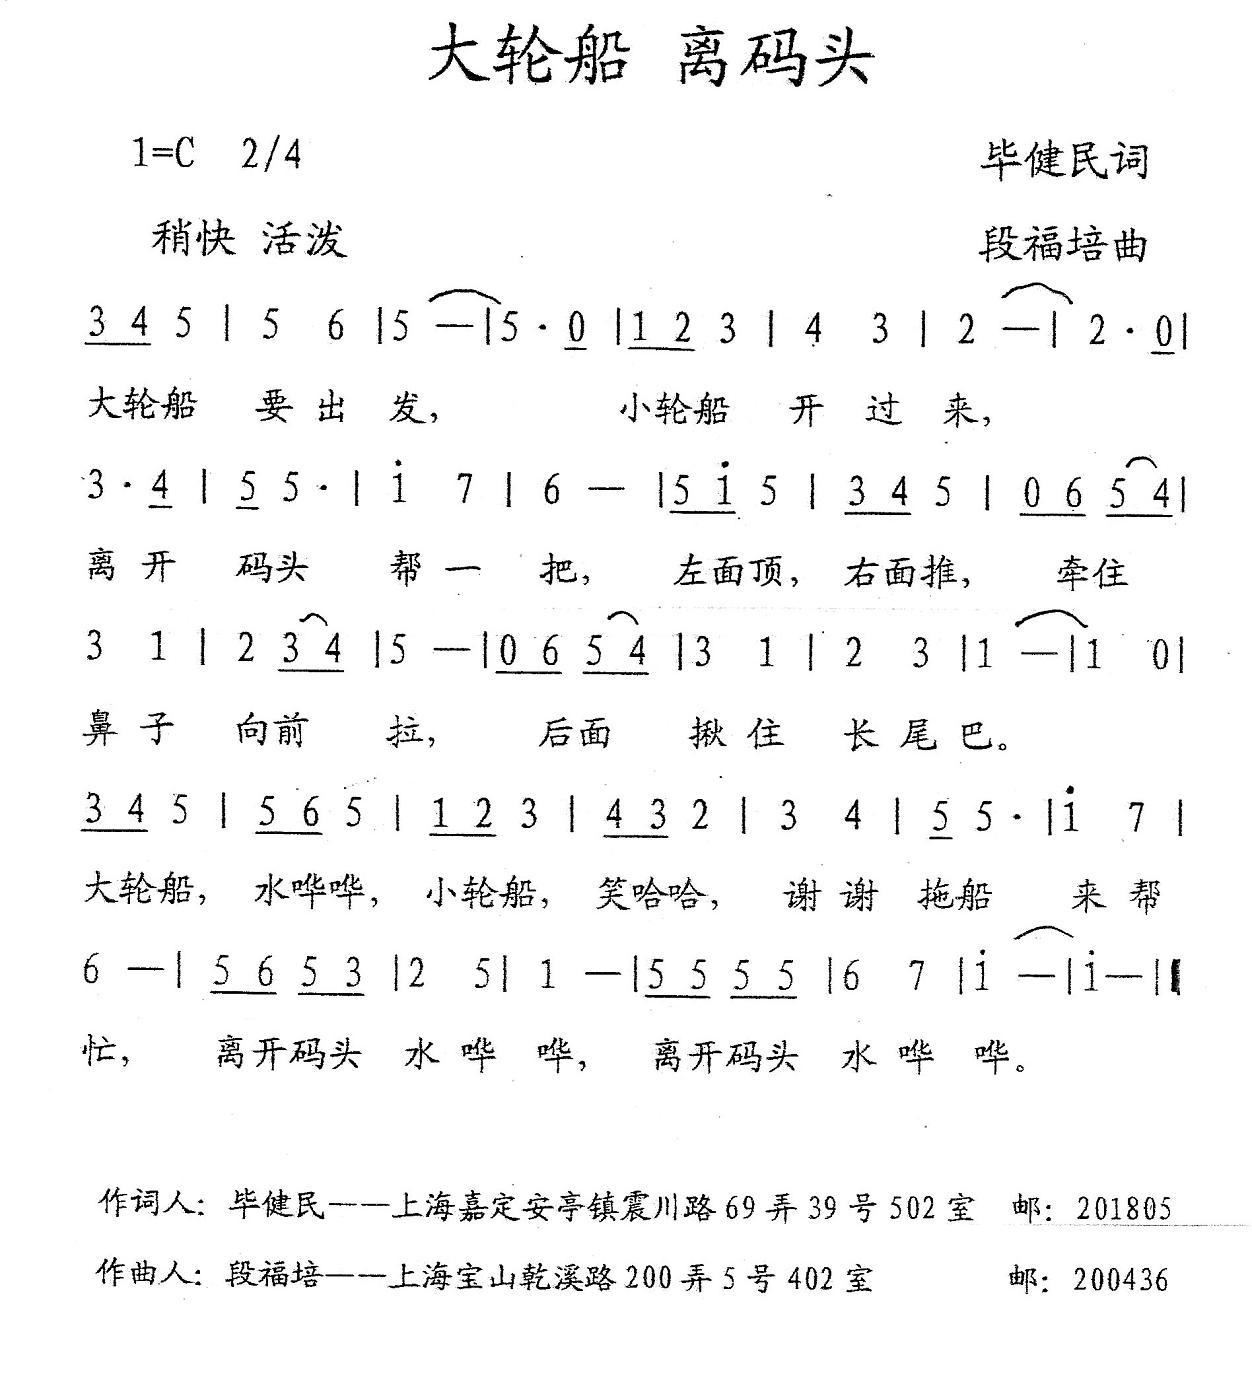 大轮船 离码头
1=C 2/4 毕健民词
稍快 活泼 段福培曲
3 4 5 | 5 6 |5 —|5 · 0 |1 2 3 | 4 3 | 2 —| 2 · 0|
大轮船 要出发, 小轮船 开过来,
3 · 4 | 5 5 · | i 7 | 6 — |5 i 5 | 3 4 5 | 0 6 5 4|
离开 码头 帮一 把, 左面顶, 右面推, 牵住
3 1 | 2 3 4 |5 —|0 6 5 4 |3 1 | 2 3 |1 —|1 0|
鼻子 向前 拉, 后面 揪住 长尾巴。
3 4 5 | 5 6 5 | 1 2 3 | 4 3 2 | 3 4 | 5 5 · |i 7 |
大轮船, 水哗哗, 小轮船, 笑哈哈, 谢谢 拖船 来帮
6 —| 5 6 5 3 |2 5| 1 —|5 5 5 5 |6 7 |i —|i—||
忙, 离开码头 水哗 哗, 离开码头 水哗 哗。
作词人: 毕健民——上海嘉定安亭镇震川路 69 弄 39 号 502 室 邮: 201805
作曲人: 段福培——上海宝山乾溪路 200 弄 5 号 402 室 邮: 200436